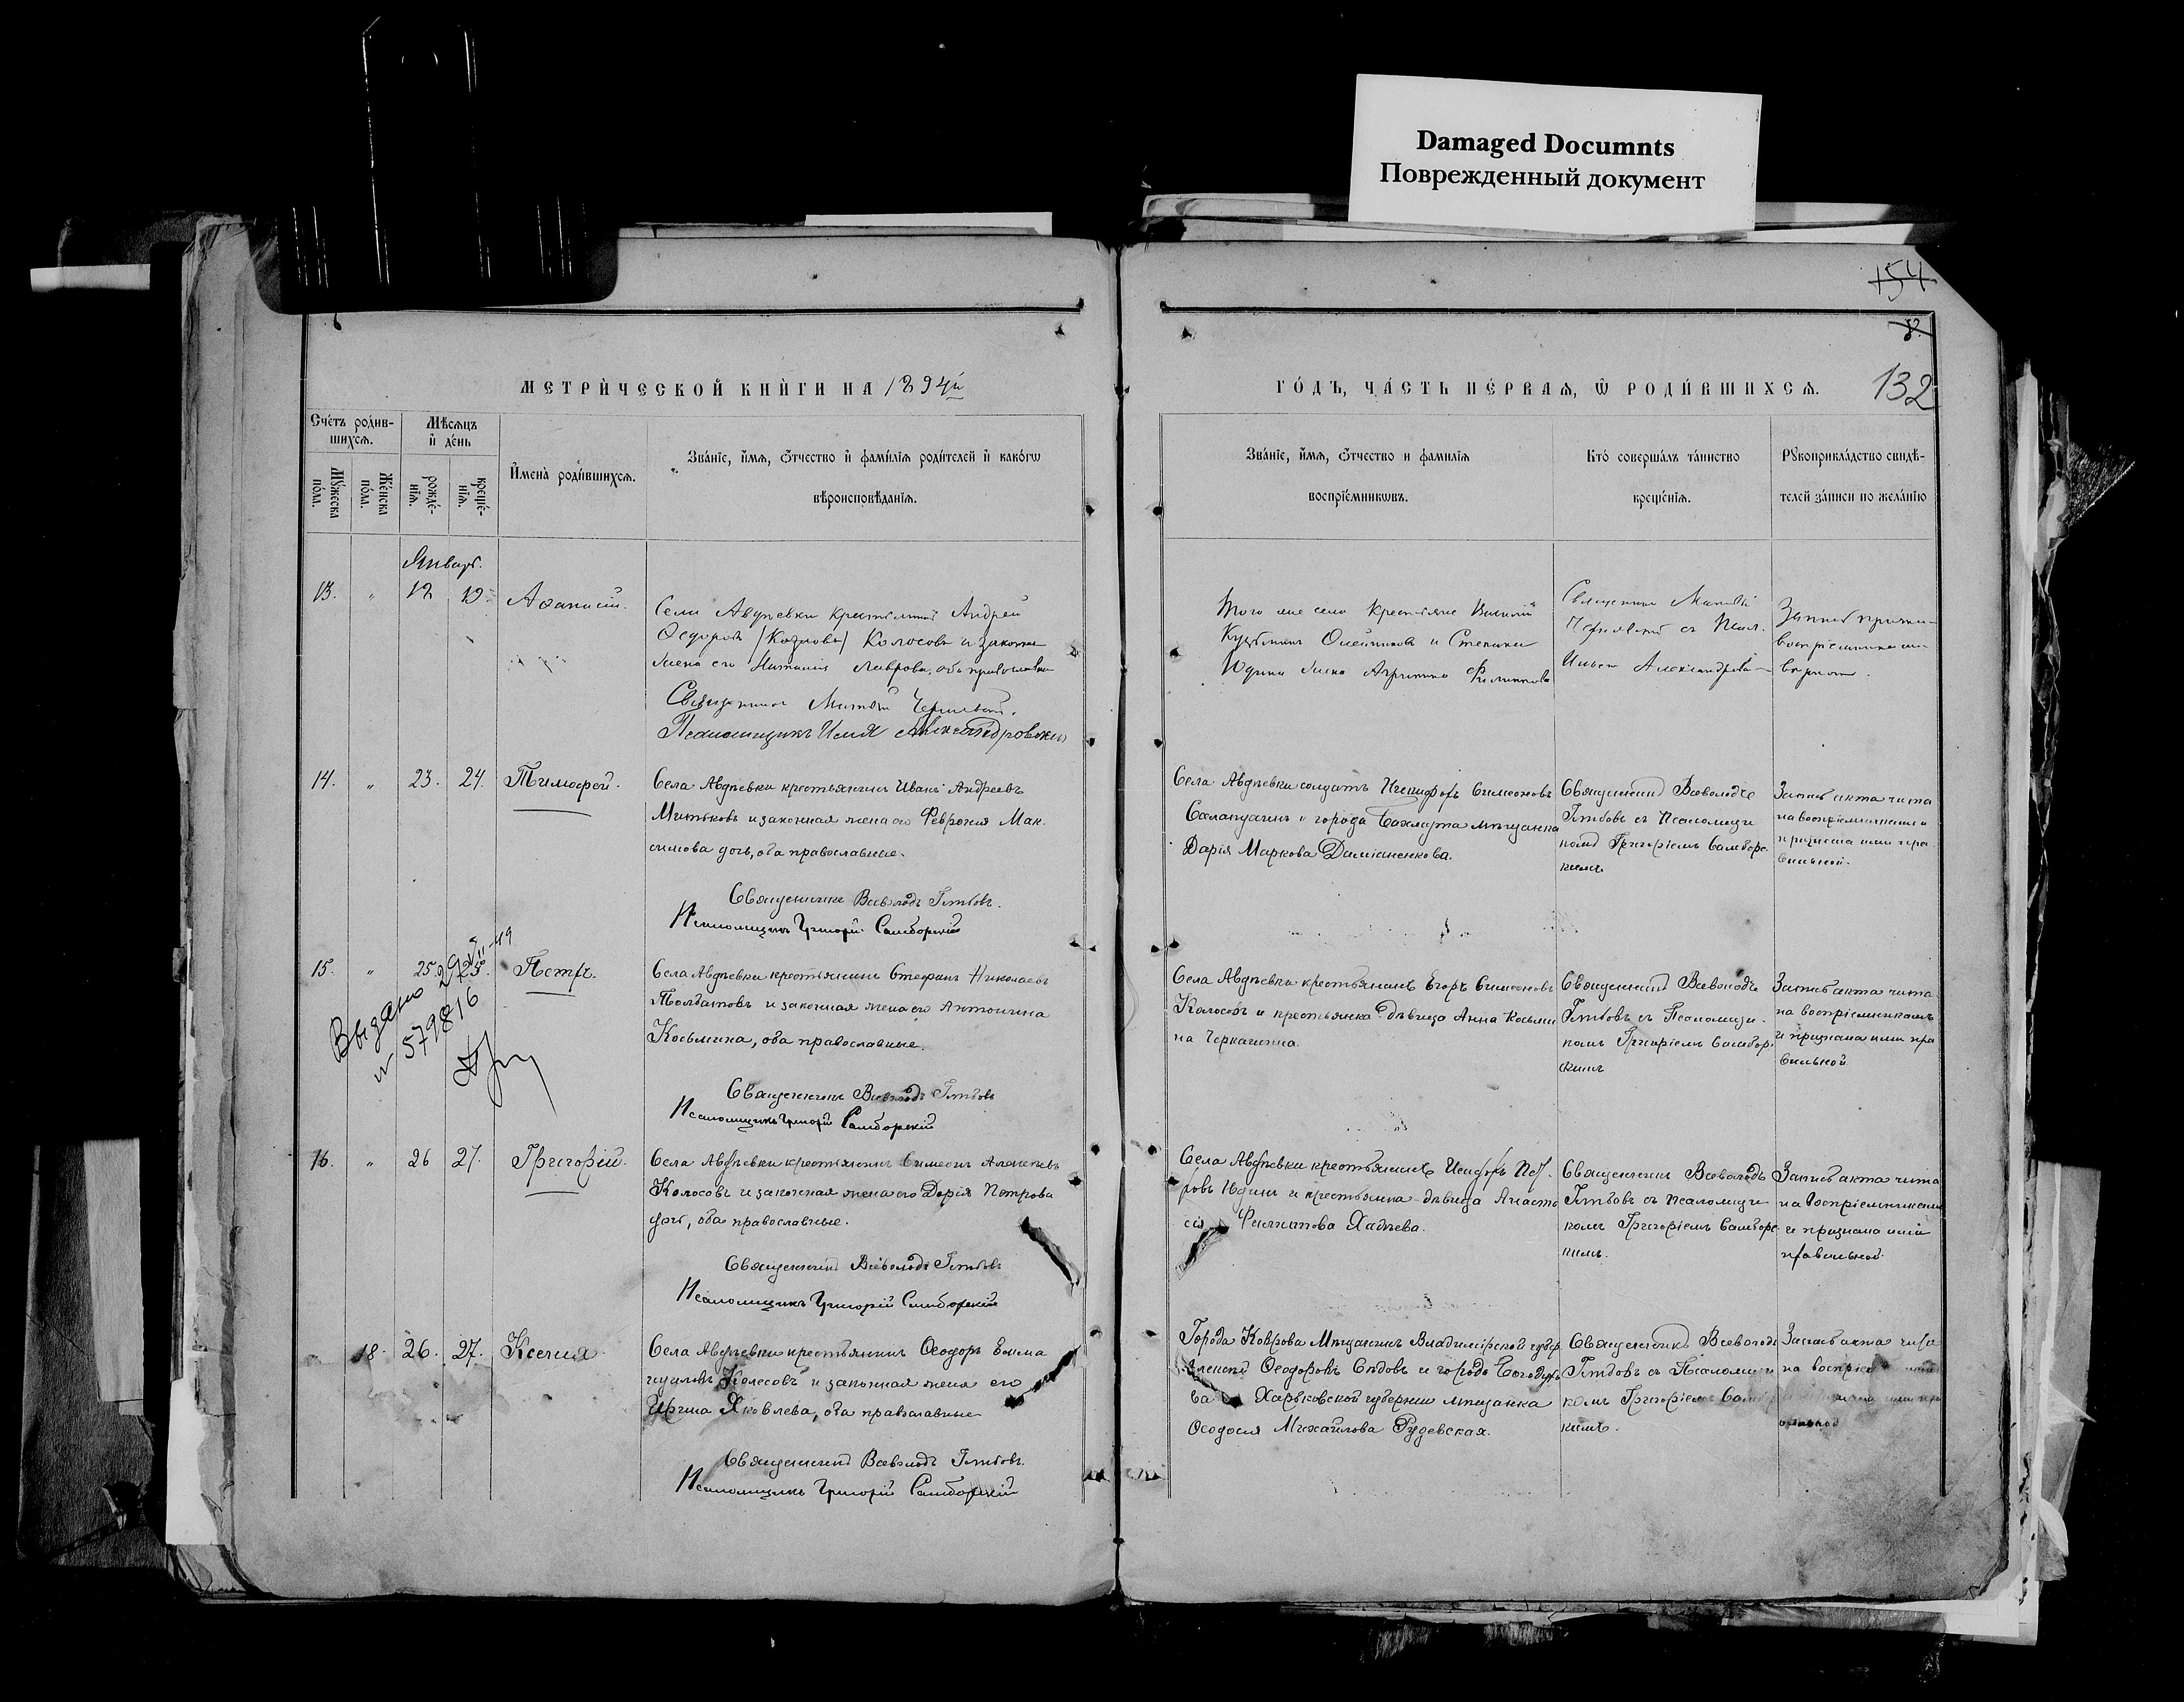 Damaged Documnts
Поврежденный документ
154
132
МЕТРИ́ЧЕСКОЙ КНИ́ГИ НА 1894й
ГО́ДЪ, ЧА́СТЬ ПЕ́РВАЯ, Ѽ РОДИ́ВШИХСЯ.
Сче́тъ роди́в-
шихся.
Мѣ́сяцъ
и҆ де́нь
Му́жеска
по́ла.
Же́нска
по́ла.
рожде́-
нїя.
креще́-
нїя.
И҆мена̀ роди́вшихся.
Зва́нїе, и҆́мя, ѻ҆́тчество и҆ фами́лїя роди́телей и҆ како́гѡ
вѣроисповѣ́данїя.
Зва́нїе, и҆́мя, ѻ҆́тчество и фами́лїя
воспрїе́мникѡвъ.
Кто̀ соверша́лъ та́инство
креще́нїя.
Рꙋкоприкла́дство свидѣ́-
телей за́писи по жела́нїю
Январь.
13. " 12 12. Аѳанасій.
Села Авдѣевки крестьянинъ Андрей
Ѳедоровъ /Козловъ/ Колосовъ и законная
жена его Наталія Лаврова, оба православные
Священникъ
Псаломщикъ Илія Александровскій
Того же села крестьяне Василій
Кузьминъ Олейниковъ и Степана
Юдина жена Агрипина Филиппова
Священникъ
съ Псал.
14. " 23. 24. Тимоѳей.
Села Авдѣевки крестьянинъ Иванъ Андреевъ
Митьковъ и законная жена его Феврония Мак-
симова дочь, оба православные.
Священникъ Всеволодъ
Псаломщикъ Григорій Самборскій
Села Авдѣевки солдатъ Никифоръ Симеоновъ
и города Бахмута мѣщанка
Дарія Маркова Даміаненкова.
Священникъ Всеволодъ
съ Псаломщи-
комъ Григоріемъ Самборс-
кимъ
Запись акта чита-
на воспріемниками и
признана ими пра-
вильной.
15. " 25. 25. Петръ.
Выдано
№ 579816
Села Авдѣевки крестьянинъ Стефанъ Николаевъ
Толдатовъ и законная жена его Антонина
Косьмина, оба православные.
Священникъ Всеволодъ
Псаломщикъ Григорій Самборскій
Села Авдѣевки крестьянинъ Егоръ Симеоновъ
Колосовъ и крестьянка-дѣвица Анна Косьми-
на Черкашина.
Священникъ Всеволодъ
съ Псаломщи-
комъ Григоріемъ Самбор-
скимъ
Запись акта чита-
на воспріемниками
и признана ими пра-
вильной
16. " 26 27. Григорій.
Села Авдѣевки крестьянинъ Симеонъ Алексѣевъ
Колосовъ и законная жена его Дарія Петрова
дочь, оба православные.
Священникъ Всеволодъ
Псаломщикъ Григорій Самборскій
Села Авдѣевки крестьянинъ Исидоръ Пет-
ровъ Юдинъ и крестьянка-дѣвица Анаста-
сія Филиппова Хаднева.
Священникъ Всеволодъ
съ Псаломщи-
комъ Григоріемъ Самборс-
кимъ.
Запись акта чита-
на воспріемниками
и признана ими
правильной.
18. 26. 27. Ксенія
Села Авдѣевки крестьянинъ Ѳеодоръ
Колесовъ и законная жена его
Ирина Яковлева, оба православные
Священникъ Всеволодъ
Псаломщикъ Григорій Самборскій
Города Коврова мѣщанинъ Владимірской губер.
Ѳеодоровъ Сѣдовъ и города Богодухо-
ва Харьковской губерніи мѣщанка
Ѳеодосія Михайлова Рудевская.
Священникъ Всеволодъ
съ Псаломщи-
комъ Григоріемъ
кимъ.
Запись акта чита-
на